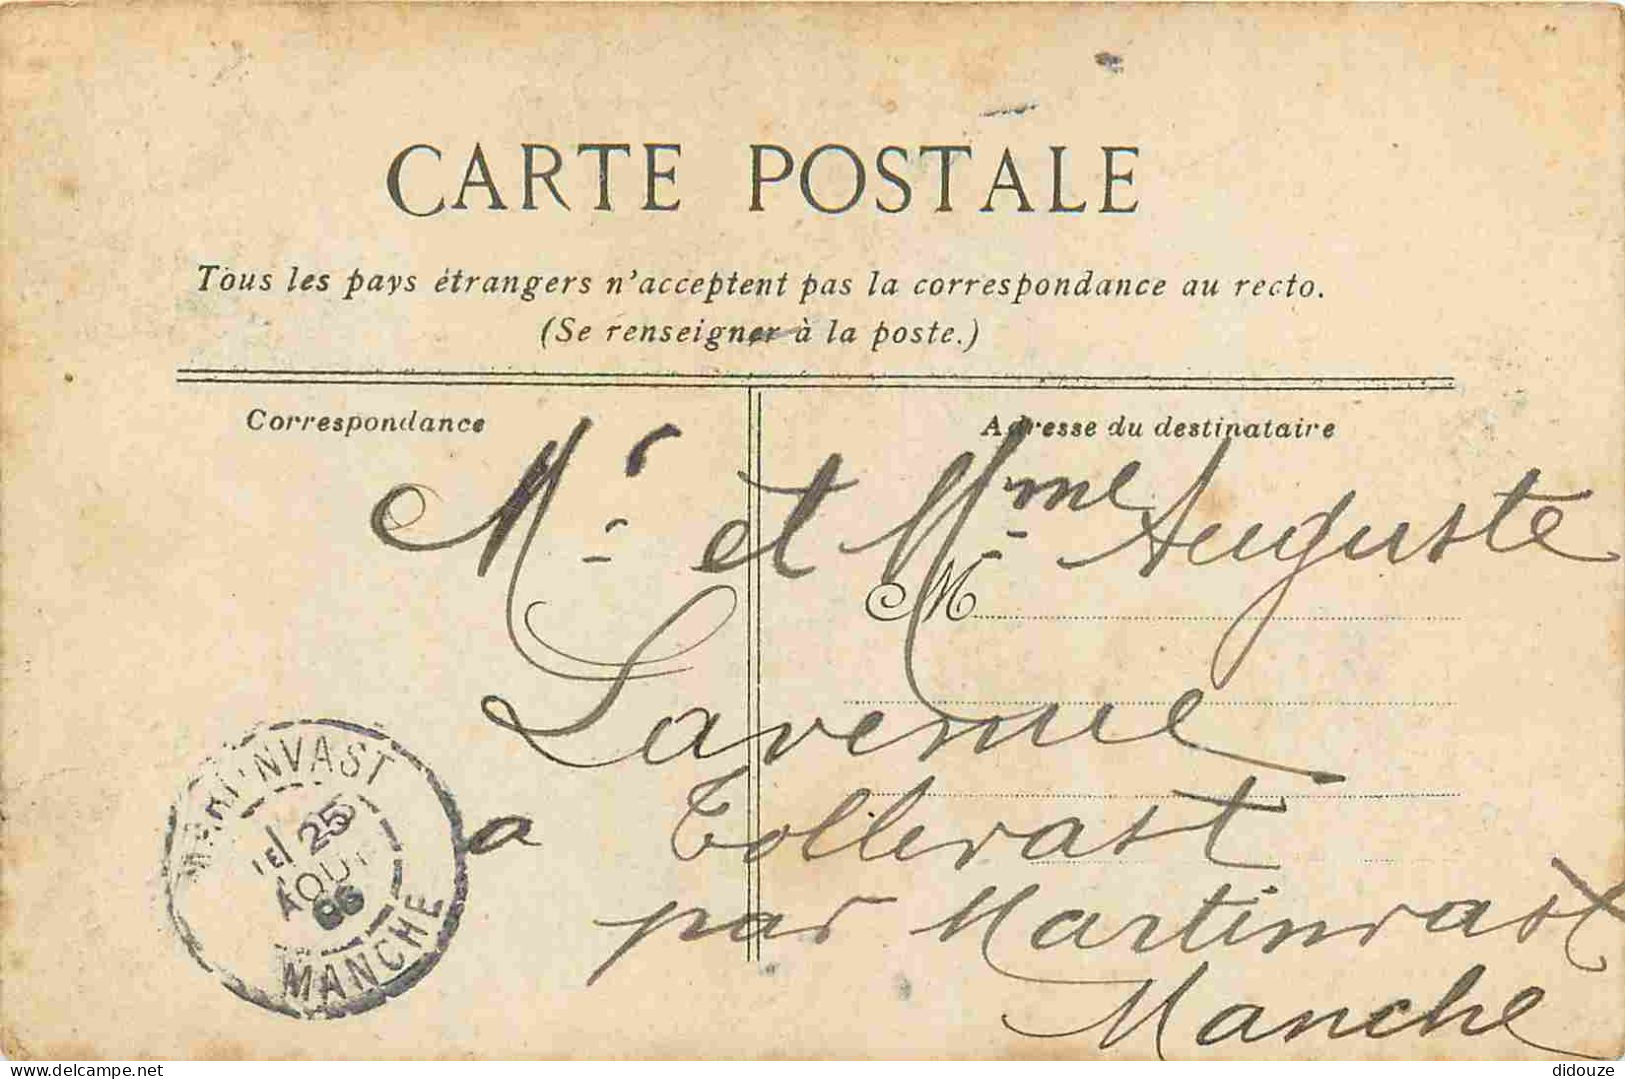 CARTE POSTALE
Tous les pays étrangers n'acceptent pas la correspondance au recto.
(Se renseigner à la poste.)
Correspondance
Adresse du destinataire
Mr. et Mme Auguste
M
Lavenue
a Tollevast
par Martinvast
Manche
MARTINVAST
25
AOUT
06
MANCHE
didouze